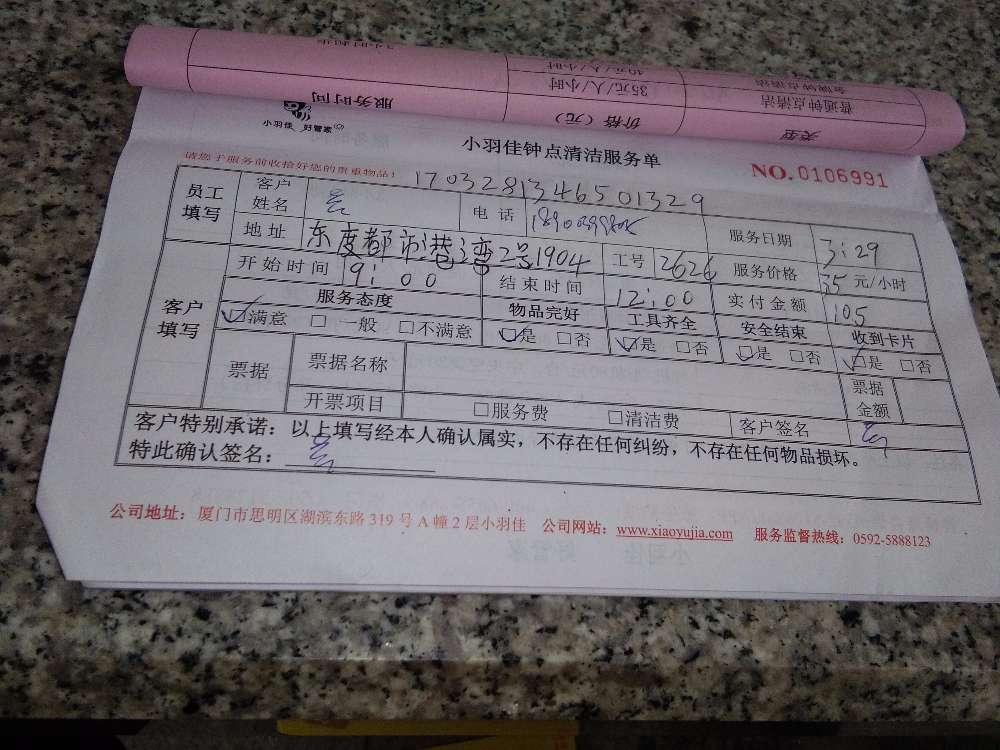 服务时间 价格（元） 类型
35元/人/小时 普通钟点清洁
小羽佳 好管家
小羽佳钟点清洁服务单
请您于服务前收拾好您的贵重物品！
NO.0106991
1703281346501329
员工填写 客户姓名 电话 服务日期 3:29
地址 东度都市港湾2号1904 工号 2626 服务价格 35 元/小时
客户填写 开始时间 9:00 结束时间 12:00 实付金额 105
服务态度 物品完好 工具齐全 安全结束 收到卡片
☑满意 □一般 □不满意 ☑是 □否 ☑是 □否 ☑是 □否 ☑是 □否
票据 票据名称 票据金额
开票项目 □服务费 □清洁费 客户签名
客户特别承诺：以上填写经本人确认属实，不存在任何纠纷，不存在任何物品损坏。
特此确认签名：
公司地址：厦门市思明区湖滨东路319号A幢2层小羽佳 公司网站：www.xiaoyujia.com 服务监督热线：0592-5888123